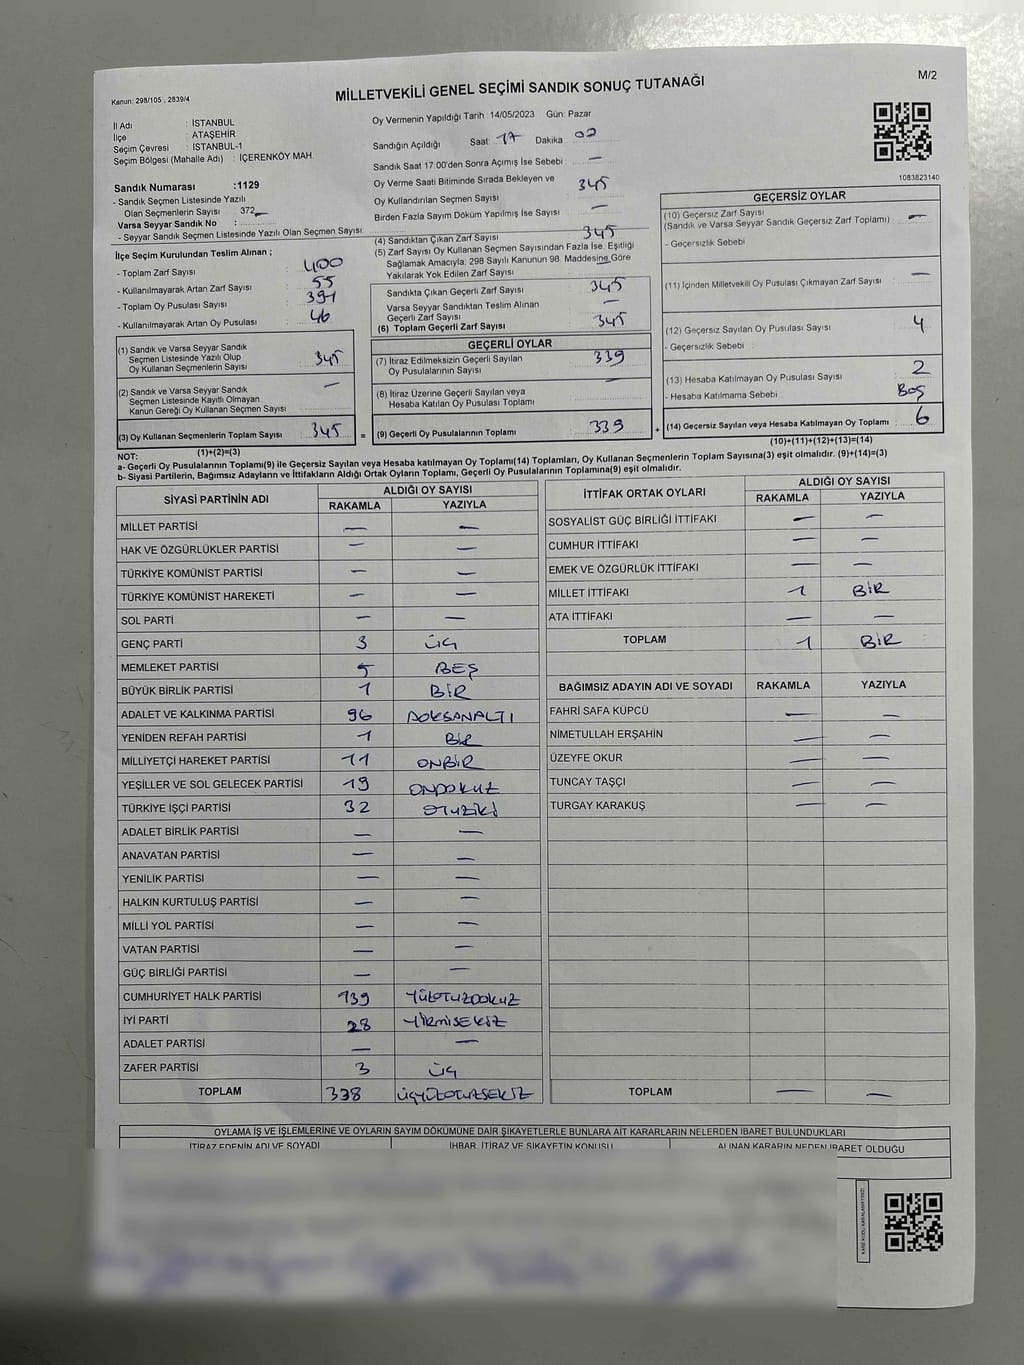 M/2
Kanun: 298/105 , 2839/4
MİLLETVEKİLİ GENEL SEÇİMİ SANDIK SONUÇ TUTANAĞI
İl Adı : İSTANBUL
İlçe : ATAŞEHİR
Seçim Çevresi : İSTANBUL-1
Seçim Bölgesi (Mahalle Adı) : İÇERENKÖY MAH.
Sandık Numarası :1129
- Sandık Seçmen Listesinde Yazılı
Olan Seçmenlerin Sayısı : 372
Varsa Seyyar Sandık No :
- Seyyar Sandık Seçmen Listesinde Yazılı Olan Seçmen Sayısı:
İlçe Seçim Kurulundan Teslim Alınan ;
- Toplam Zarf Sayısı : 400
- Kullanılmayarak Artan Zarf Sayısı : 55
- Toplam Oy Pusulası Sayısı : 391
- Kullanılmayarak Artan Oy Pusulası : 46
(1) Sandık ve Varsa Seyyar Sandık
Seçmen Listesinde Yazılı Olup
Oy Kullanan Seçmenlerin Sayısı : 345
(2) Sandık ve Varsa Seyyar Sandık
Seçmen Listesinde Kayıtlı Olmayan
Kanun Gereği Oy Kullanan Seçmen Sayısı : —
(3) Oy Kullanan Seçmenlerin Toplam Sayısı : 345
(1)+(2)=(3)
Oy Vermenin Yapıldığı Tarih : 14/05/2023 Gün: Pazar
Sandığın Açıldığı Saat : 17 Dakika : 02
Sandık Saat 17.00'den Sonra Açımış İse Sebebi : —
Oy Verme Saati Bitiminde Sırada Bekleyen ve
Oy Kullandırılan Seçmen Sayısı : 345
Birden Fazla Sayım Döküm Yapılmış İse Sayısı : —
(4) Sandıktan Çıkan Zarf Sayısı : 345
(5) Zarf Sayısı Oy Kullanan Seçmen Sayısından Fazla İse, Eşitliği
Sağlamak Amacıyla; 298 Sayılı Kanunun 98. Maddesine Göre
Yakılarak Yok Edilen Zarf Sayısı : —
Sandıkta Çıkan Geçerli Zarf Sayısı : 345
Varsa Seyyar Sandıktan Teslim Alınan
Geçerli Zarf Sayısı : —
(6) Toplam Geçerli Zarf Sayısı : 345
GEÇERLİ OYLAR
(7) İtiraz Edilmeksizin Geçerli Sayılan
Oy Pusulalarının Sayısı : 339
(8) İtiraz Üzerine Geçerli Sayılan veya
Hesaba Katılan Oy Pusulası Toplamı : —
= (9) Geçerli Oy Pusulalarının Toplamı : 339 +
1083823140
GEÇERSİZ OYLAR
(10) Geçersiz Zarf Sayısı : —
(Sandık ve Varsa Seyyar Sandık Geçersiz Zarf Toplamı)
- Geçersizlik Sebebi :
(11) İçinden Milletvekili Oy Pusulası Çıkmayan Zarf Sayısı : —
(12) Geçersiz Sayılan Oy Pusulası Sayısı : 4
- Geçersizlik Sebebi :
(13) Hesaba Katılmayan Oy Pusulası Sayısı : 2
- Hesaba Katılmama Sebebi : BOŞ
(14) Geçersiz Sayılan veya Hesaba Katılmayan Oy Toplamı : 6
(10)+(11)+(12)+(13)=(14)
NOT:
a- Geçerli Oy Pusulalarının Toplamı(9) ile Geçersiz Sayılan veya Hesaba katılmayan Oy Toplamı(14) Toplamları, Oy Kullanan Seçmenlerin Toplam Sayısına(3) eşit olmalıdır. (9)+(14)=(3)
b- Siyasi Partilerin, Bağımsız Adayların ve İttifakların Aldığı Ortak Oyların Toplamı, Geçerli Oy Pusulalarının Toplamına(9) eşit olmalıdır.
SİYASİ PARTİNİN ADI ALDIĞI OY SAYISI
RAKAMLA YAZIYLA
MİLLET PARTİSİ — —
HAK VE ÖZGÜRLÜKLER PARTİSİ — —
TÜRKİYE KOMÜNİST PARTİSİ — —
TÜRKİYE KOMÜNİST HAREKETİ — —
SOL PARTİ — —
GENÇ PARTİ 3 ÜÇ
MEMLEKET PARTİSİ 5 BEŞ
BÜYÜK BİRLİK PARTİSİ 1 BİR
ADALET VE KALKINMA PARTİSİ 96 DOKSANALTI
YENİDEN REFAH PARTİSİ 1 BİR
MİLLİYETÇİ HAREKET PARTİSİ 11 ONBİR
YEŞİLLER VE SOL GELECEK PARTİSİ 19 ONDOKUZ
TÜRKİYE İŞÇİ PARTİSİ 32 OTUZİKİ
ADALET BİRLİK PARTİSİ — —
ANAVATAN PARTİSİ — —
YENİLİK PARTİSİ — —
HALKIN KURTULUŞ PARTİSİ — —
MİLLİ YOL PARTİSİ — —
VATAN PARTİSİ — —
GÜÇ BİRLİĞİ PARTİSİ — —
CUMHURİYET HALK PARTİSİ 139 YÜZOTUZDOKUZ
İYİ PARTİ 28 YİRMİSEKİZ
ADALET PARTİSİ — —
ZAFER PARTİSİ 3 ÜÇ
TOPLAM 338 ÜÇYÜZOTUZSEKİZ
İTTİFAK ORTAK OYLARI ALDIĞI OY SAYISI
RAKAMLA YAZIYLA
SOSYALİST GÜÇ BİRLİĞİ İTTİFAKI — —
CUMHUR İTTİFAKI — —
EMEK VE ÖZGÜRLÜK İTTİFAKI — —
MİLLET İTTİFAKI 1 BİR
ATA İTTİFAKI — —
TOPLAM 1 BİR
BAĞIMSIZ ADAYIN ADI VE SOYADI RAKAMLA YAZIYLA
FAHRİ SAFA KÜPCÜ — —
NİMETULLAH ERŞAHİN — —
ÜZEYFE OKUR — —
TUNCAY TAŞÇI — —
TURGAY KARAKUŞ — —
TOPLAM — —
OYLAMA İŞ VE İŞLEMLERİNE VE OYLARIN SAYIM DÖKÜMÜNE DAİR ŞİKAYETLERLE BUNLARA AİT KARARLARIN NELERDEN İBARET BULUNDUKLARI
İTİRAZ EDENİN ADI VE SOYADI İHBAR, İTİRAZ VE ŞİKAYETİN KONUSU ALINAN KARARIN NEDEN İBARET OLDUĞU